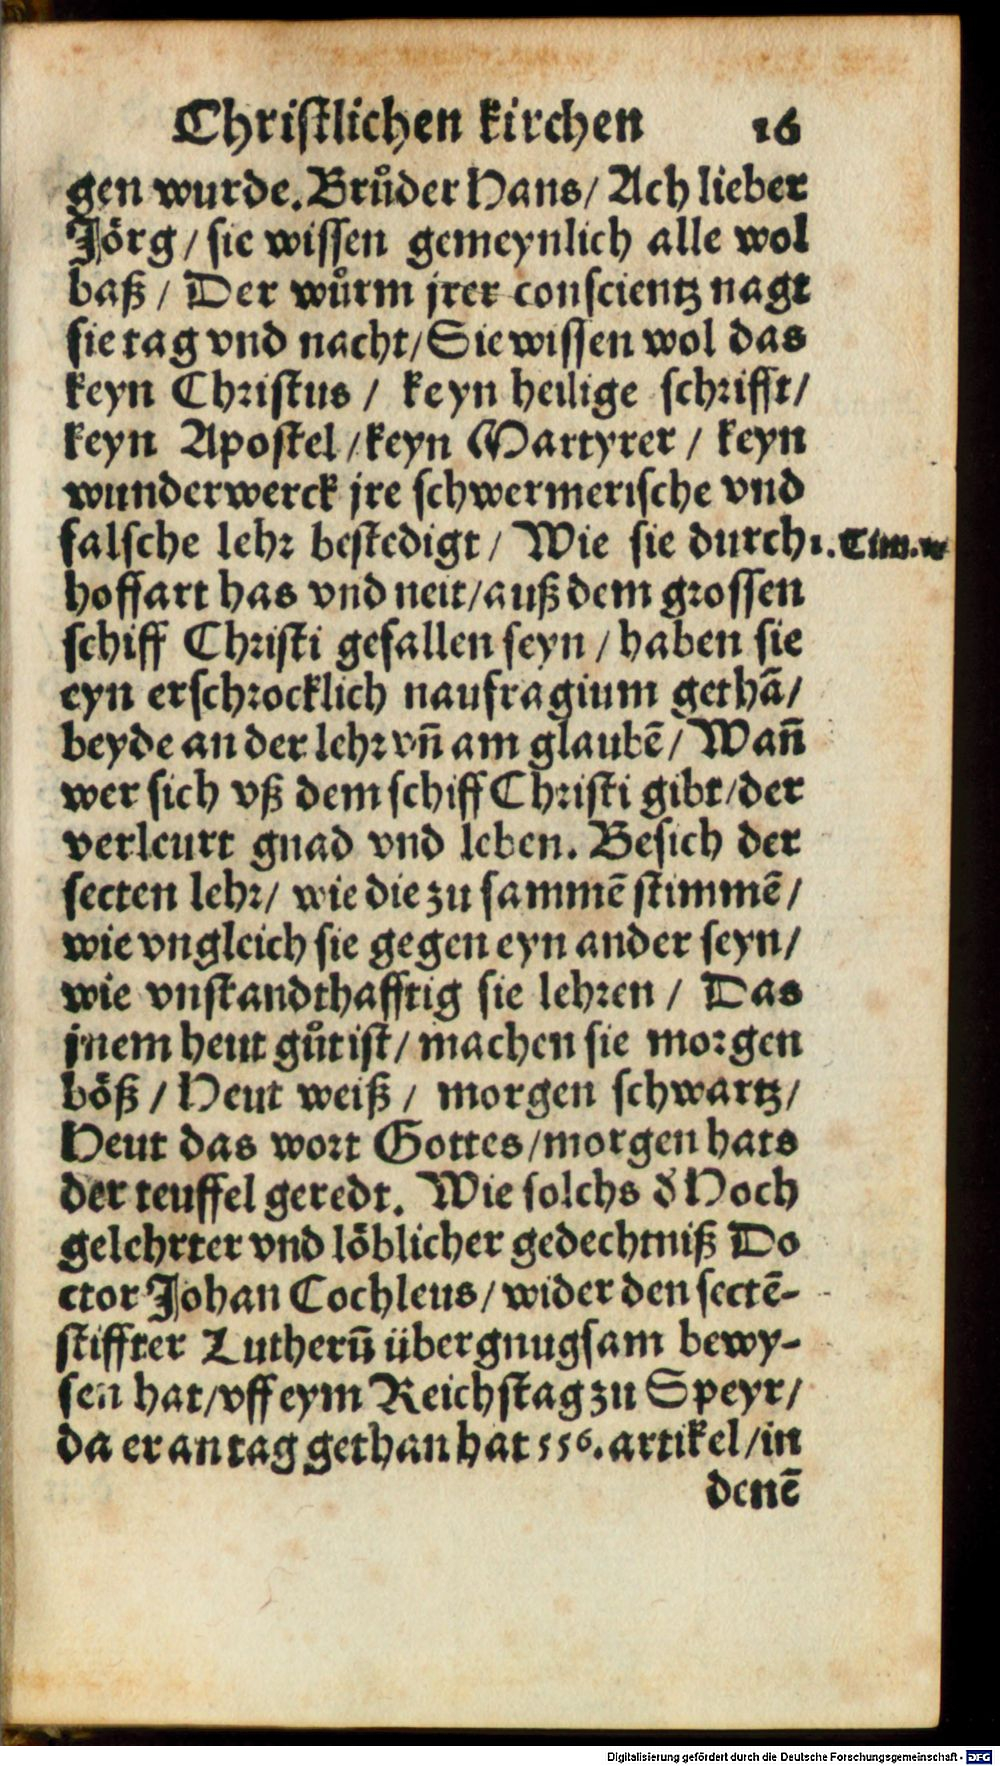 Christlichen kirchen 16
gen wurde. Brůder Hans/ Ach lieber
Jörg/ sie wissen gemeynlich alle wol
baß/ Der wůrm jrer conscientz nagt
sie tag vnd nacht/ Sie wissen wol das
keyn Christus/ keyn heilige schrifft/
keyn Apostel/ keyn Martyrer/ keyn
wunderwerck jre schwermerische vnd
falsche lehr bestedigt/ Wie sie durch 1. Tim.
hoffart has vnd neit/ auß dem grossen
schiff Christi gefallen seyn/ haben sie
eyn erschrocklich naufragium gethã/
beyde an der lehr vñ am glaubẽ/ Wañ
wer sich vß dem schiff Christi gibt/ der
verleurt gnad vnd leben. Besich der
secten lehr/ wie die zu sammẽ stimmẽ/
wie vngleich sie gegen eyn ander seyn/
wie vnstandthafftig sie lehren/ Das
jnem heut gůt ist/ machen sie morgen
böß/ Heut weiß/ morgen schwartz/
Heut das wort Gottes/ morgen hats
der teuffel geredt. Wie solchs d' Hoch
gelehrter vnd löblicher gedechtniß Do
ctor Johan Cochleus/ wider den sectẽ-
stiffter Lutherũ übergnugsam bewy-
sen hat/ vff eym Reichstag zu Speyr/
da er an tag gethan hat 556. artikel/ in
denẽ
Digitalisierung gefördert durch die Deutsche Forschungsgemeinschaft - DFG